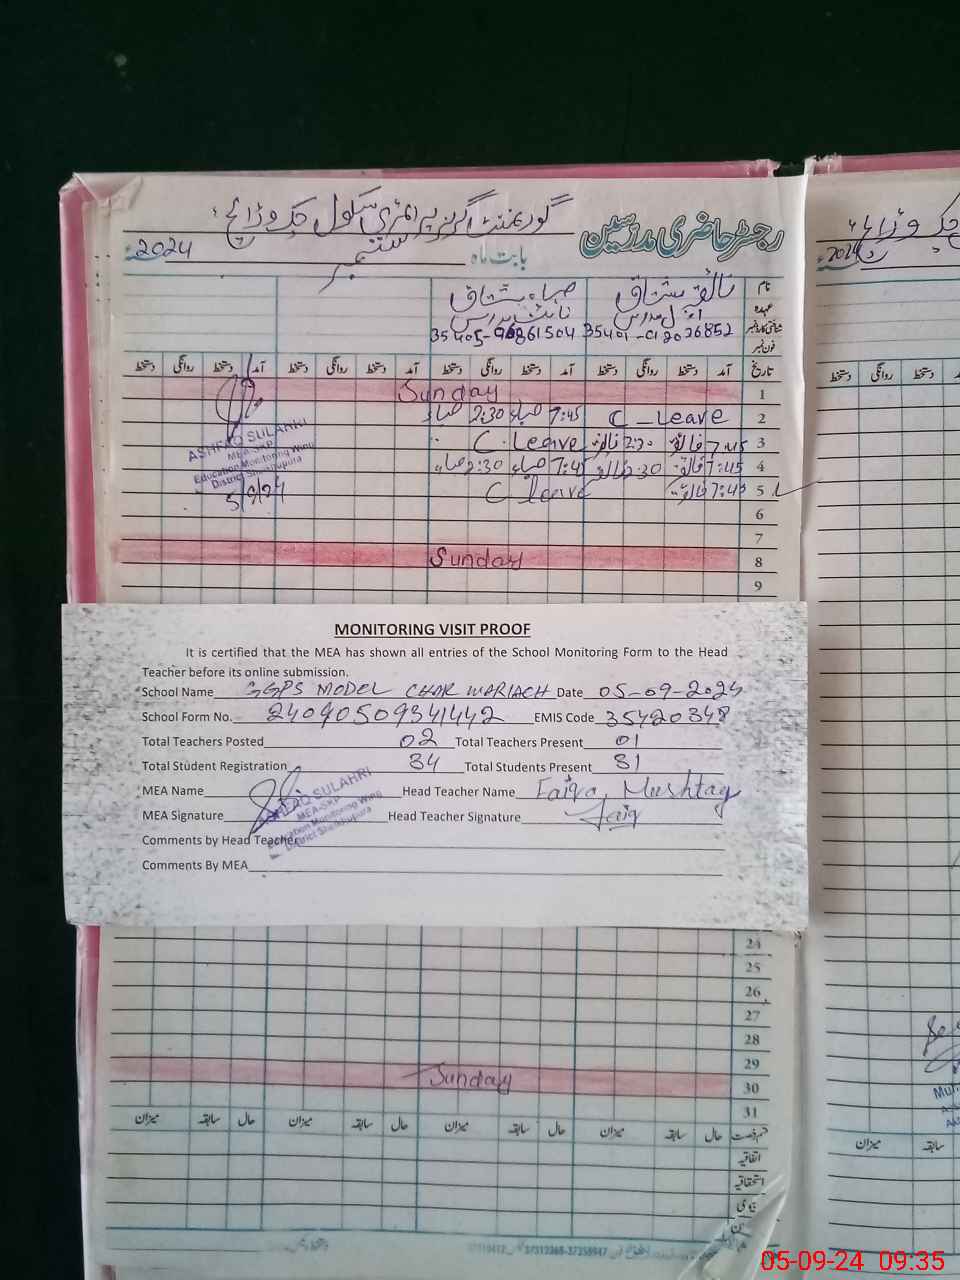 رجسٹر حاضری مدرسین گورنمنٹ گرلز پرائمری سکول چک وڑائچ
بابت ماہ ستمبر 2024ء
نام فائقہ مشتاق صباء مشتاق
عہدہ
شناختی کارڈ نمبر
فون نمبر
تاریخ آمد دستخط روانگی دستخط آمد دستخط روانگی دستخط آمد دستخط روانگی دستخط آمد دستخط روانگی دستخط
1 Sunday
2 C_Leave 7:45 صباء 2:30 صباء
3 7:45 فائقہ 2:30 فائقہ C.Leave
4 7:45 فائقہ 2:30 فائقہ 7:45 صباء 2:30 صباء
5 7:45 فائقہ C leave
6
7
8 Sunday
9
ASHFAQ SULAHRI
MEA-SKP
Education Monitoring Wing
District Sheikhupura
5/9/24
MONITORING VISIT PROOF
It is certified that the MEA has shown all entries of the School Monitoring Form to the Head
Teacher before its online submission.
School Name GGPS MODEL CHAK WARIACH Date 05-09-2024
School Form No. 24090509341442 EMIS Code 35420348
Total Teachers Posted 02 Total Teachers Present 01
Total Student Registration 34 Total Students Present 31
MEA Name Head Teacher Name Faiqa Mushtaq
MEA Signature Head Teacher Signature Faiq
ASHFAQ SULAHRI
MEA-SKP
Education Monitoring Wing
District Sheikhupura
Comments by Head Teacher
Comments By MEA
24
25
26
27
28
29 Sunday
30
31
قسم رخصت حال سابقہ میزان حال سابقہ میزان حال سابقہ میزان حال سابقہ میزان
اتفاقیہ
استحقاقیہ
37312368-37358947
2024ء
دستخط روانگی دستخط
سابقہ میزان
05-09-24 09:35